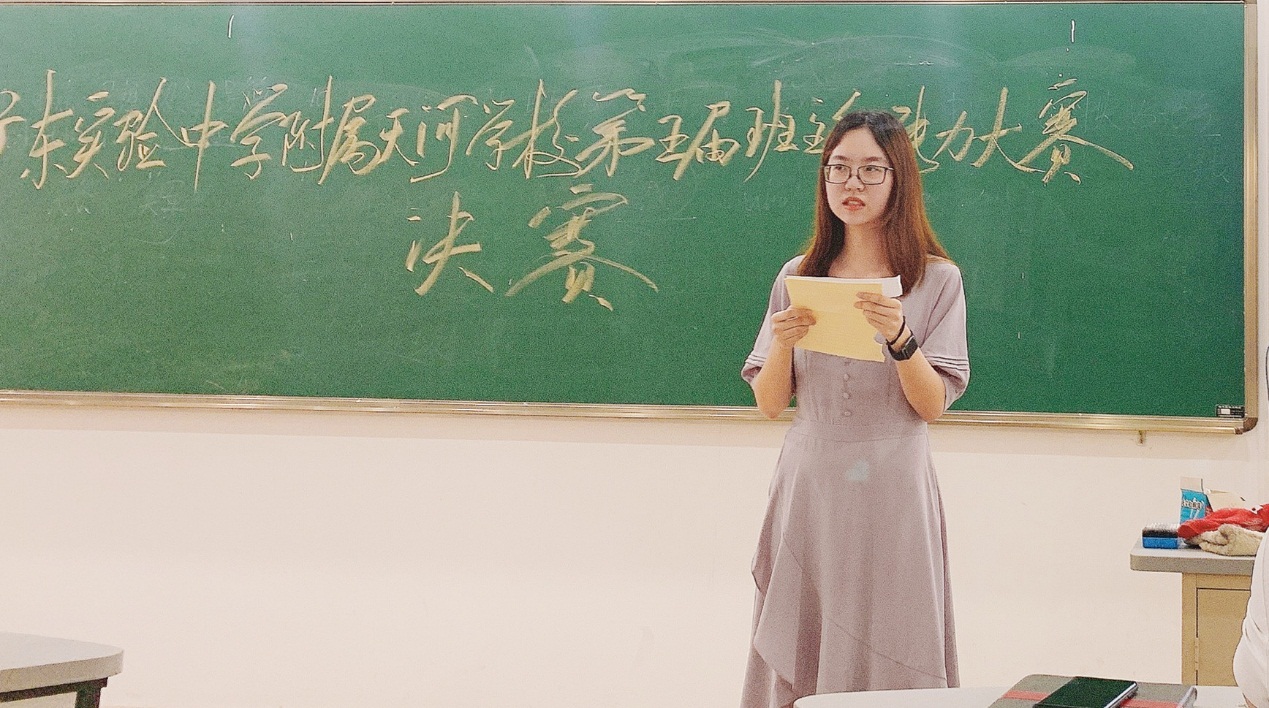 广东实验中学附属天河学校第五届班主任能力大赛
决赛